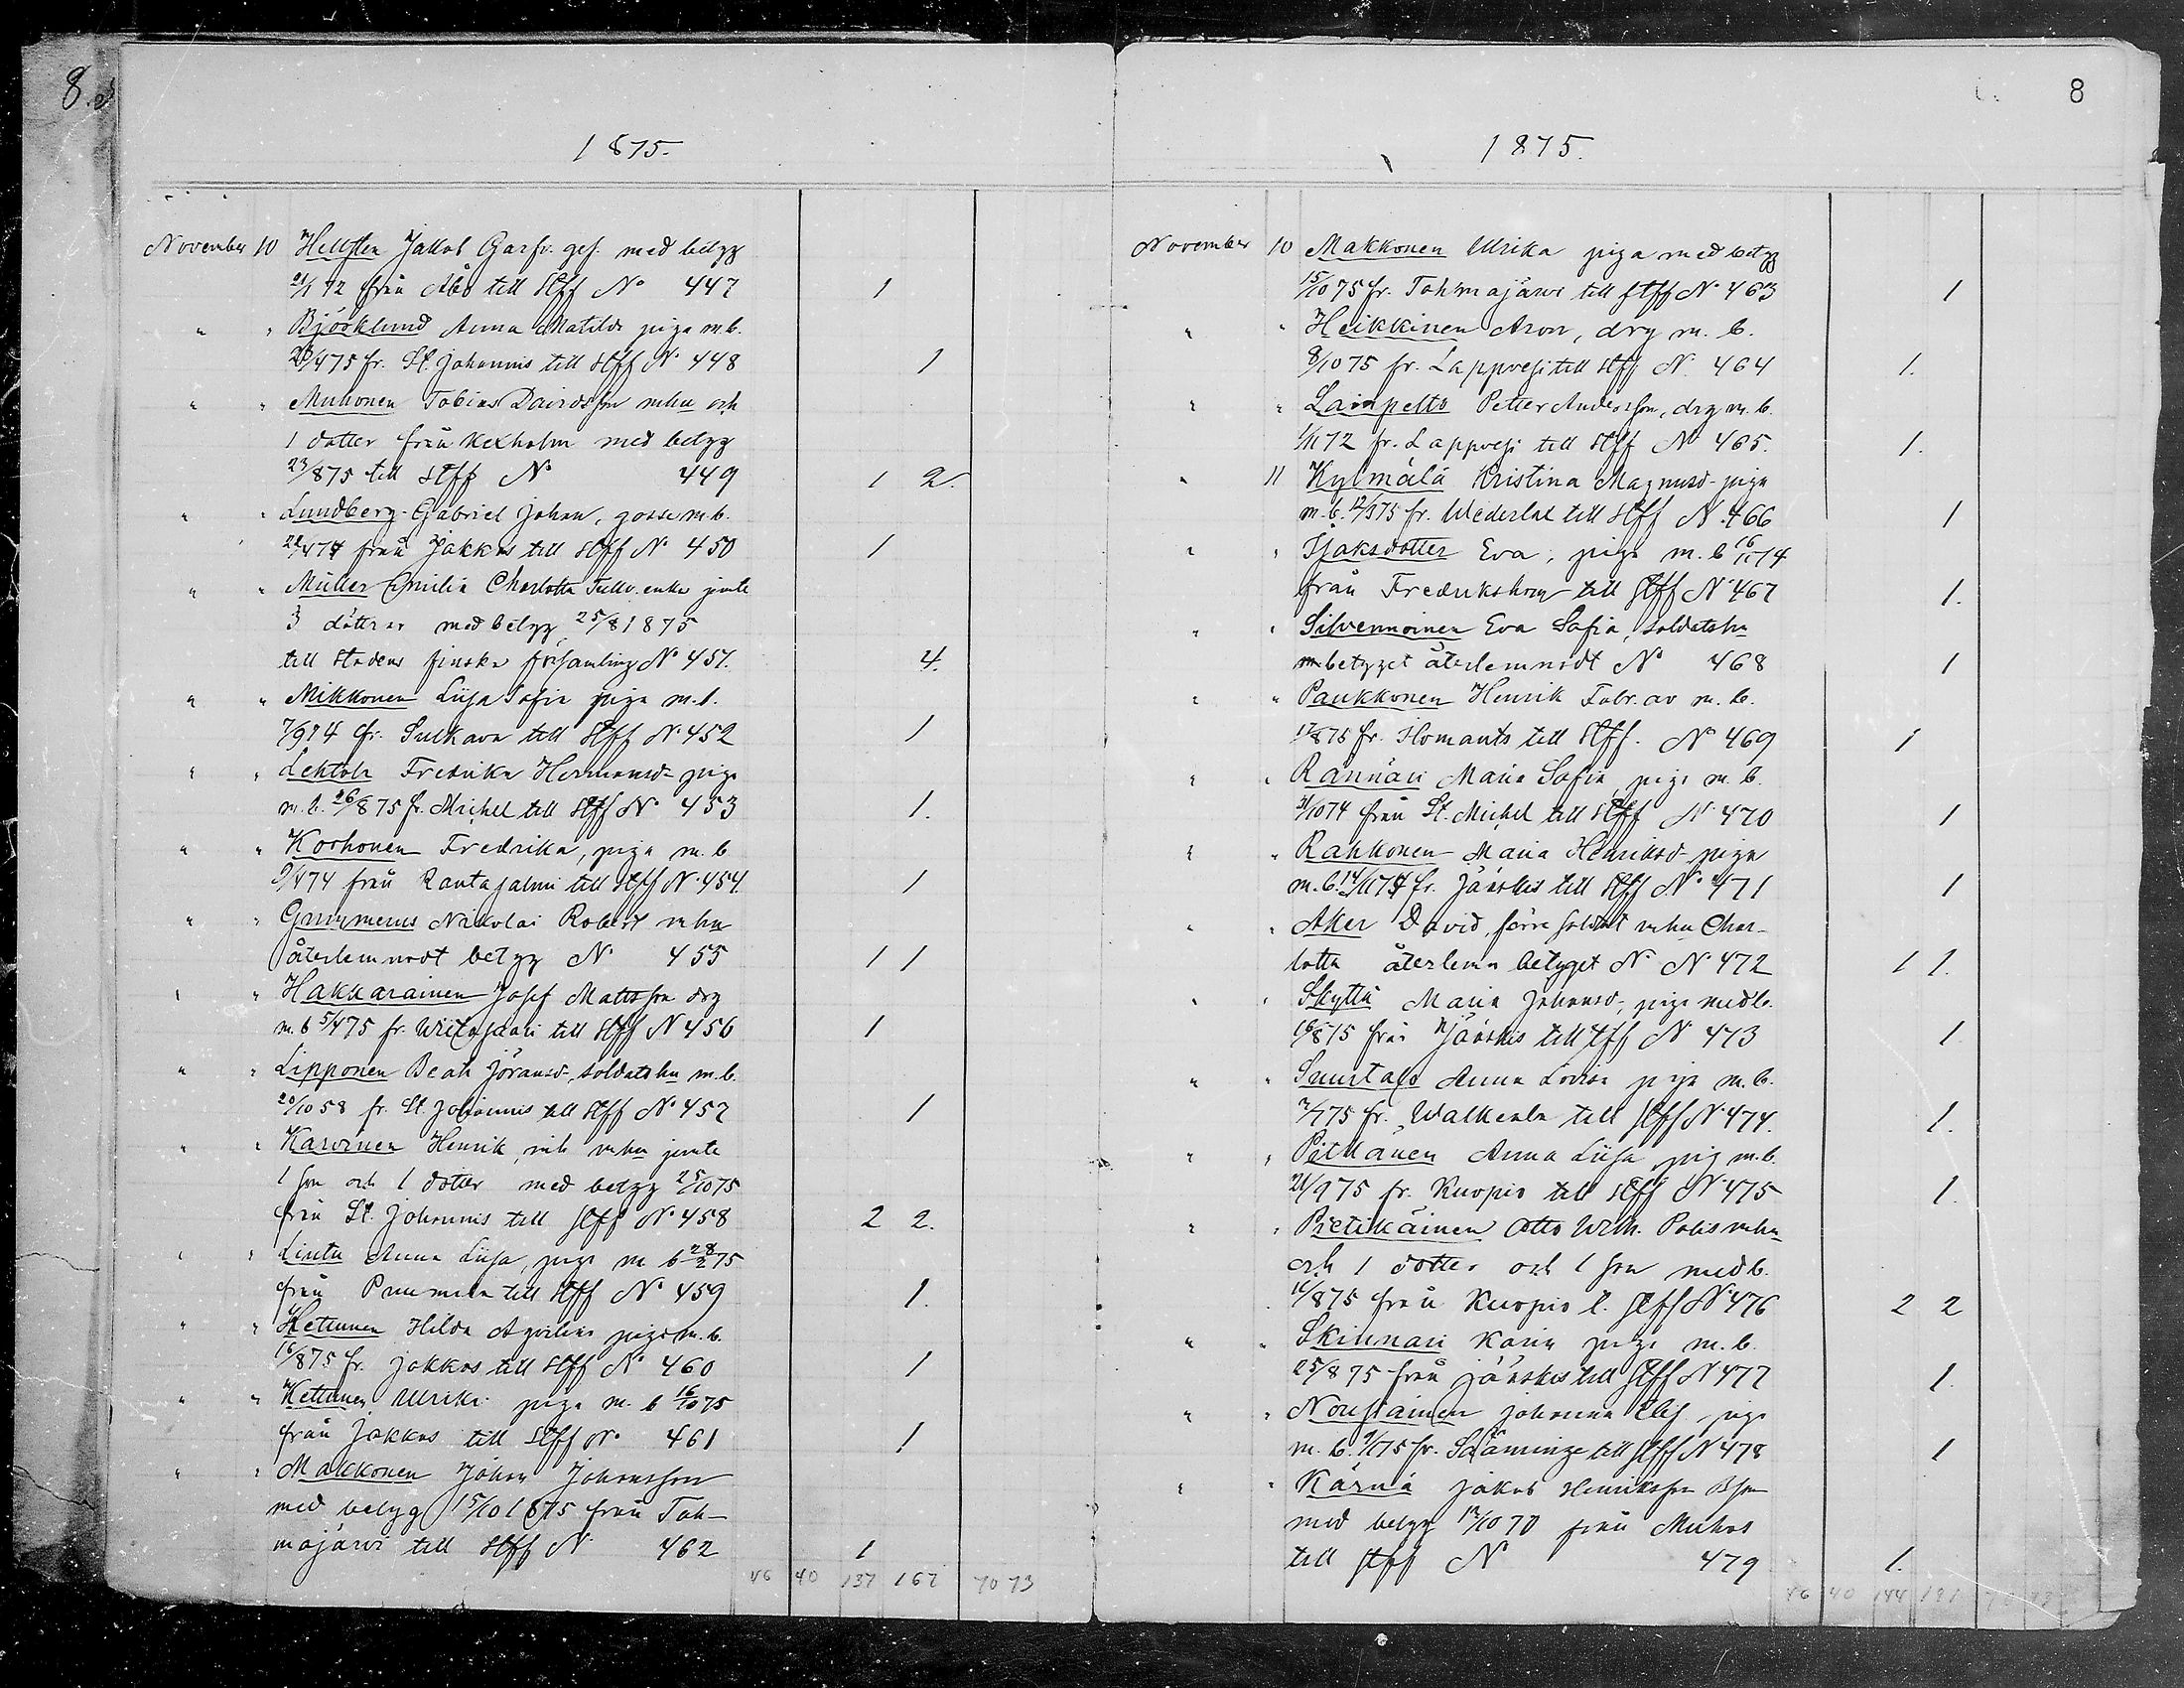 8.
1875.
November 10 Hellsten Jakob Garfv. ges. med betyg
21/1 72 från Åbo till Stff No 447 1
" " Björklund Anna Matilda piga m.b.
20/4 75 fr. St. Johannis till Stff No 448 1
" " Muhonen Tobias Davidsson mhu och
1 dotter från Kexholm med betyg
23/8 75 till Stff No 449 1 2.
" " Lundberg Gabriel Johan, gosse m.b.
22/4 74 från Jakkas till Stff No 450 1
" " Müller Emilia Charlotta Tullv. enka jemte
3 döttrar med betyg 25/8 1875
till stadens finska församling No 451. 4.
" " Mikkonen Liisa Sofia piga m.b.
7/9 74 fr. Sulkava till Stff No 452 1
" " Lehtola Fredrika Hermansd piga
m.b. 26/8 75 fr. Michel till Stff No 453 1.
" " Korhonen Fredrika, piga m.b.
9/4 74 från Rantasalmi till Stff No 454. 1
" " Grummerus Nikolai Robert mhu
återlemnadt betyg No 455 1 1
" " Hakkarainen Josef Mattsson drg
m.b 5/4 75 fr. Wiitasaari till Stff No 456 1
" " Lipponen Beata Jöransd, soldatshu m.b.
20/10 58 fr. St. Johannis till Stff No 457 1
" " Karvinen Henrik, inh mhu jemte
1 son och 1 dotter med betyg 25/10 75
från St. Johannis till Stff No 458 2 2.
" " Lintu Anna Liisa, piga m b 28/2 75
från Puumala till Stff No 459 1.
" " Kettunen Hilda Aqvilina piga m.b.
16/8 75 fr. Jakkas till Stff No 460 1
" " Kettunen Ulrika piga m. b 16/10 75
från Jakkas till Stff No 461 1
" " Makkonen Johan Johansson
med betyg 15/10 1875 från Toh-
majärvi till Stff No 462 1
46 40 137 167 70 73
8
1875.
November 10 Makkonen Ulrika piga med betyg
15/10 75 fr. Tohmajärvi till Stff No 463 1
" " Heikkinen Aron, drg m. b.
8/10 75 fr. Lappvesi till Stff No 464 1.
" " Lainpelto Petter Andersson, drg m. b.
1/11 72 fr. Lappvesi till Stff No 465. 1.
" 11 Kylmälä Kristina Magnusd piga
m.b. 12/9 75 fr. Wederlax till Stff No 466 1
" " Isaksdotter Eva, piga m. b 16/11 74
från Fredrikshamn till Stff No 467 1.
" " Silvennoinen Eva Sofia, soldatshu
betyget återlemnadt No 468 1
" " Paukkonen Henrik Fabr. ar m. b.
17/8 75 fr. Ilomants till Stff. No 469 1
" " Rännäri Maria Sofia, piga m. b.
31/10 74 från St. Michel till Stff No 470 1
" " Rahkonen Maria Henriksd piga
m.b. 14/11 74 fr. Jääskis till Stff No 471 1
" " Aker David, förre soldat mhu Char-
lotta återlemn betyget No No 472 1 1.
" " Skyttä Maria Johansd, piga med b.
16/8 75 från Jääskis till Stff No 473 1
" " Suurtalo Anna Lovisa piga m.b.
7/7 75 fr. Walkeala till Stff No 474. 1.
" " Pitkänen Anna Liisa pig m.b.
21/9 75 fr. Kuopio till Stff No 475 1.
" " Pietikäinen Otto Wilh. Polis mhu
och 1 dotter och 1 son med b.
16/8 75 från Kuopio t. Stff No 476 2 2
" " Skinnari Karin piga m. b.
25/8 75 från Jääskis till Stff No 477 1.
" " Nousiainen Johanna Elis piga
m. b. 9/1 75 fr. Sääminge till Stff No 478 1
" " Kärnä Jakob Henriksson Bson
med betyg 12/10 70 från Muhos
till Stff No 479 1.
46 40 144 181